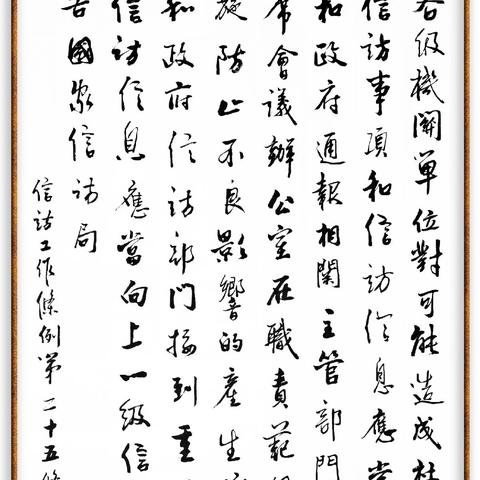 各級機關單位對可能造成社
信訪事項和信訪信息應當
和政府通報相關主管部門
席會議辦公室在職責範
施防止不良影響的產生
和政府信訪部門接到重
信訪信息應當向上一級信
告國家信訪局
信訪工作條例第二十五條